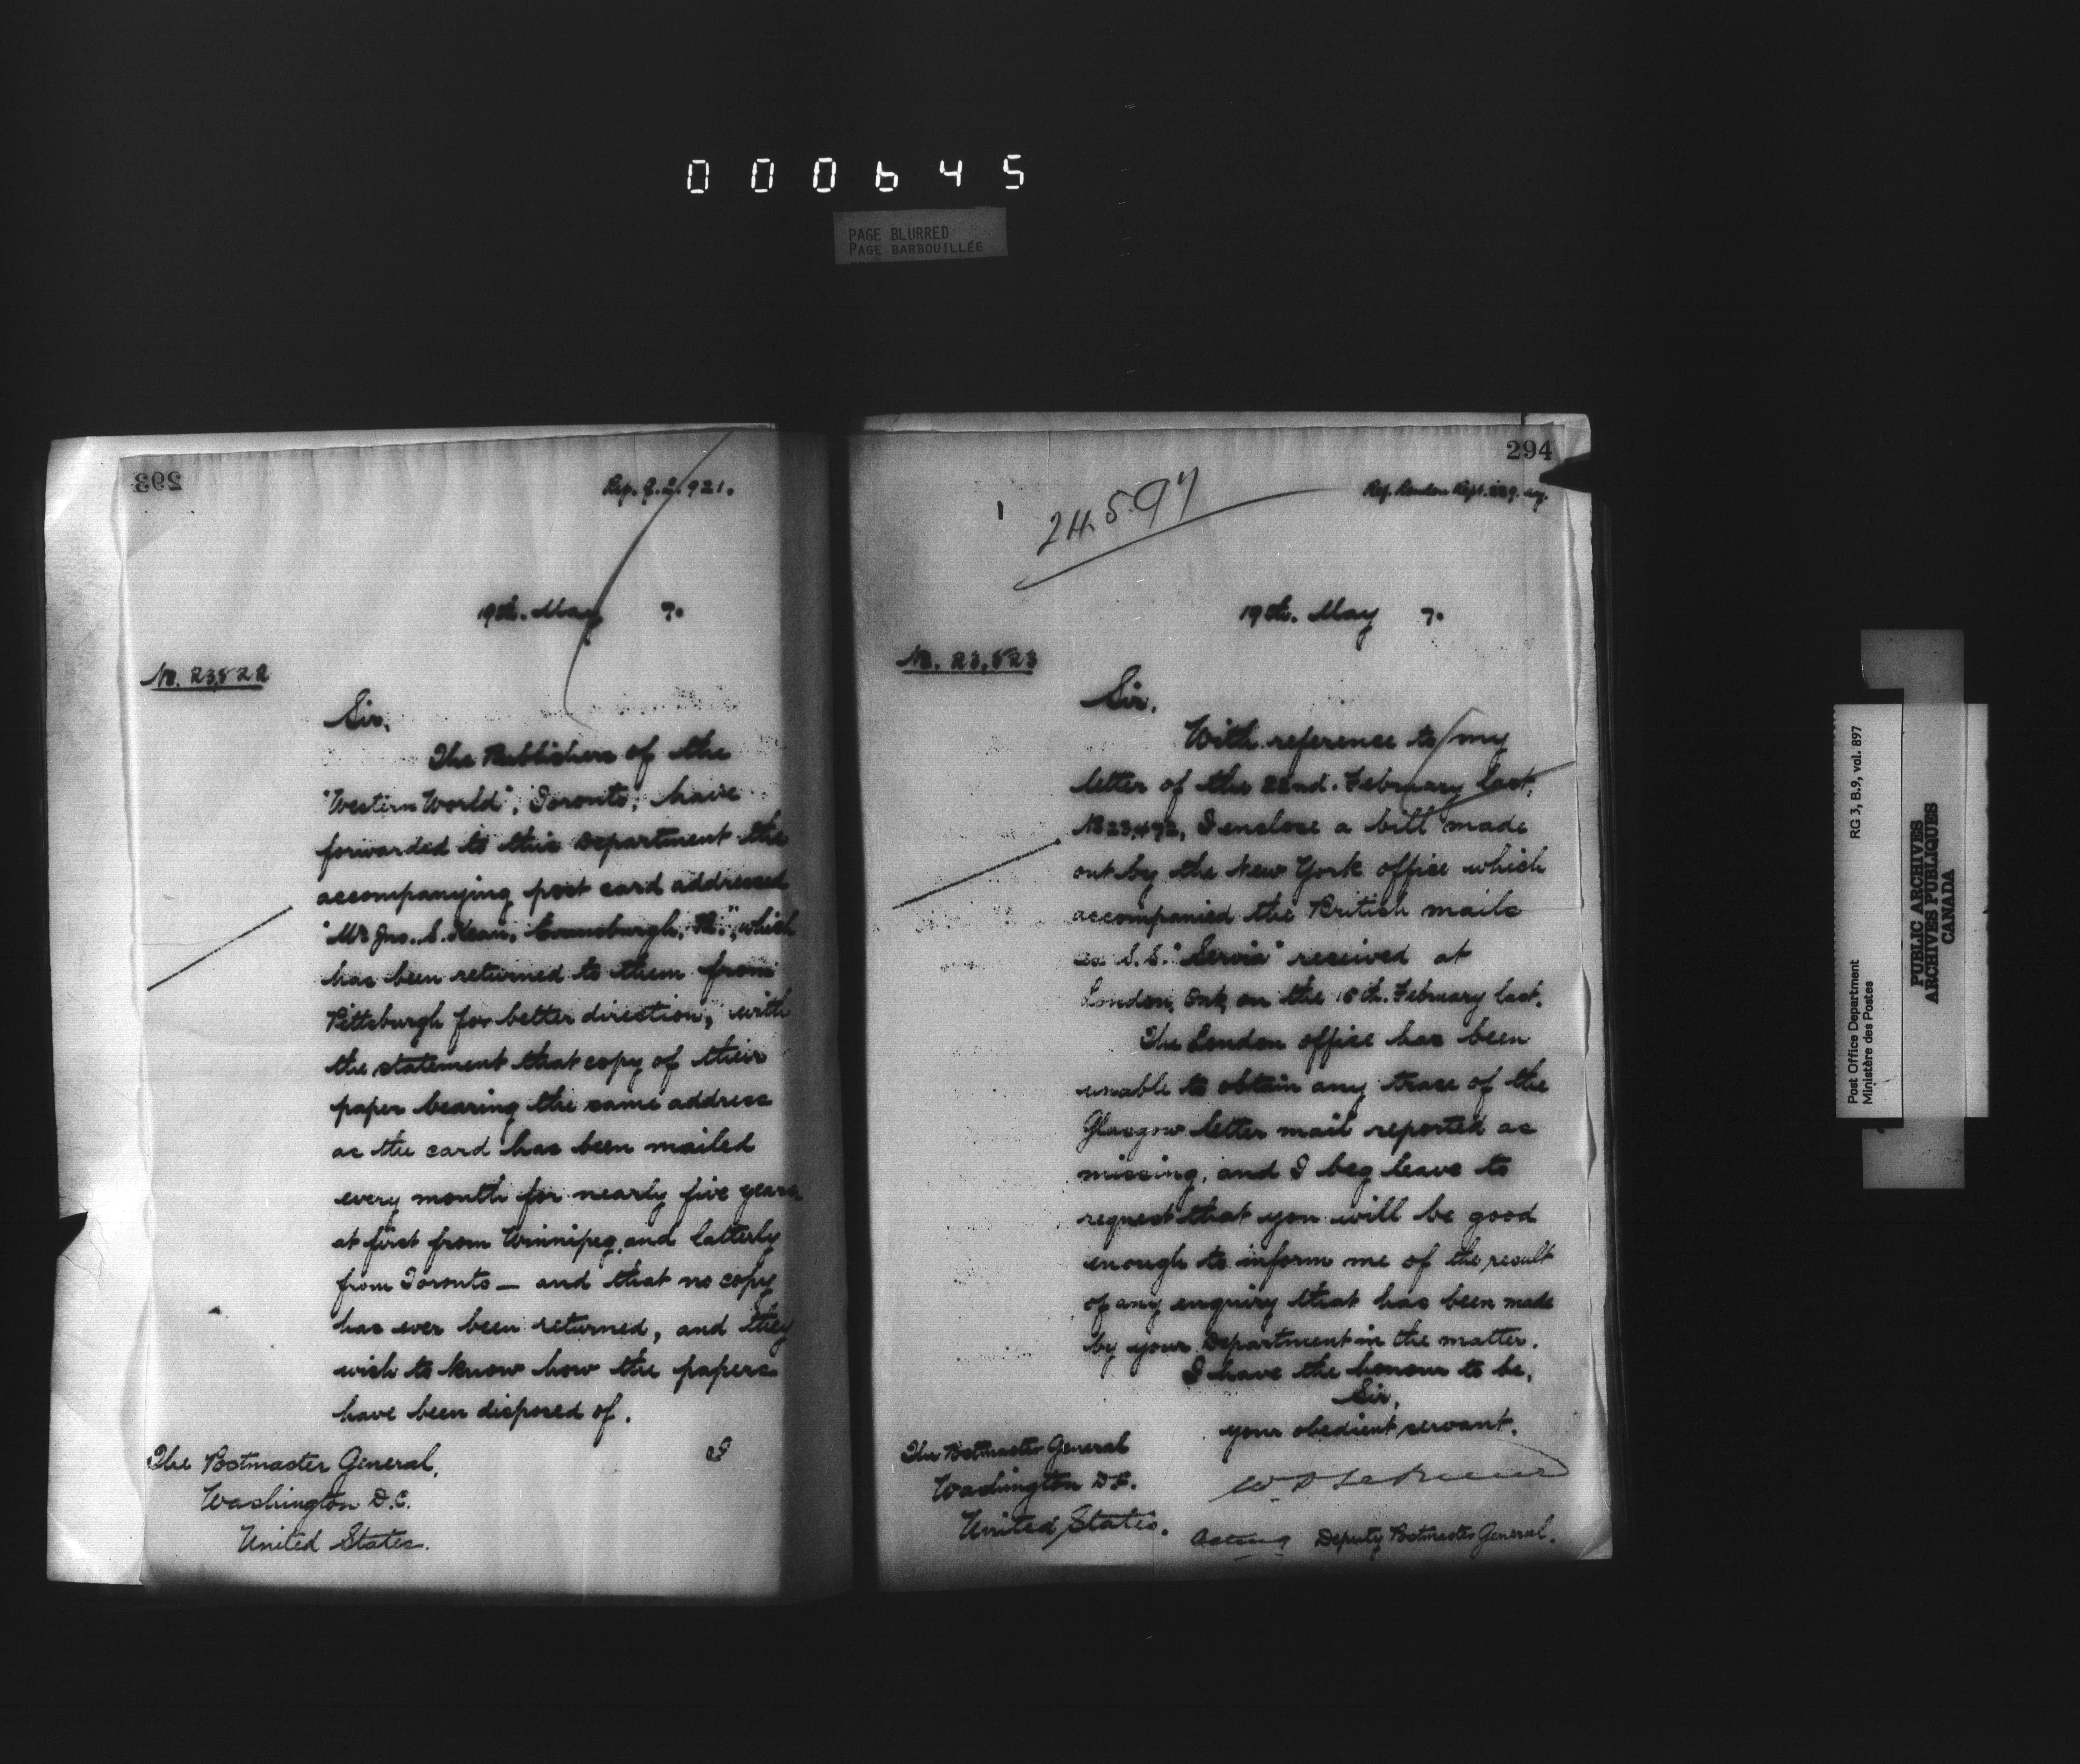 000645
PAGE BLURRED
PAGE BARBOUILLÉE
293
921.
19th. May 7.
No. 23,522
Sir,
The Publishers of the
"Western World", Toronto, have
forwarded to this Department the
accompanying post card addressed
"Mr Jno. S. Kean, which
has been returned to them from
Pittsburgh for better direction, with
the statement that copy of their
paper bearing the same address
as the card has been mailed
every month for nearly five years,
at first from Winnipeg, and latterly
from Toronto — and that no copy
has ever been returned, and they
wish to know how the papers
have been disposed of.
I
The Postmaster General,
Washington D.C.
United States.
294
Ref. London Rept.
24.5.97
19th. May 7.
No. 23,523
Sir,
With reference to my
letter of the 22nd. February last,
No 23,492, I enclose a bill made
out by the New York office which
accompanied the British mails
ex S.S. "Servia" received at
London, Ont, on the 15th. February last.
The London office has been
unable to obtain any trace of the
Glasgow letter mail reported as
missing, and I beg leave to
request that you will be good
enough to inform me of the result
of any enquiry that has been made
by your Department in the matter.
I have the honour to be,
Sir,
your obedient servant.
Acting Deputy Postmaster General.
The Postmaster General
Washington D.C.
United States.
Post Office Department RG 3, B.9, vol. 897
Ministère des Postes
PUBLIC ARCHIVES
ARCHIVES PUBLIQUES
CANADA